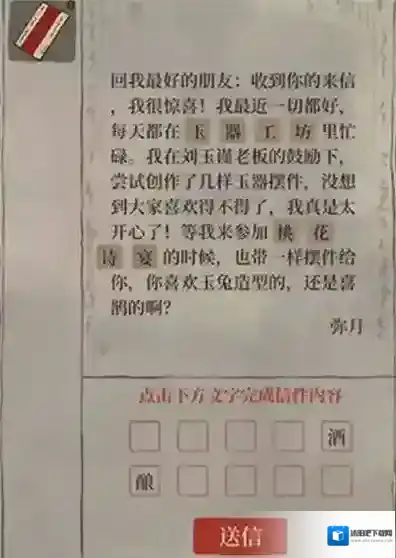 回我最好的朋友：收到你的来信
，我很惊喜！我最近一切都好，
每天都在 玉 器 工 坊 里忙
碌。我在刘玉谨老板的鼓励下，
尝试创作了几样玉器摆件，没想
到大家喜欢得不得了，我真是太
开心了！等我来参加 桃 花
诗 宴 的时候，也带一样摆件给
你，你喜欢玉兔造型的，还是喜
鹊的啊？
弥月
点击下方文字完成信件内容
酒
酿
送信